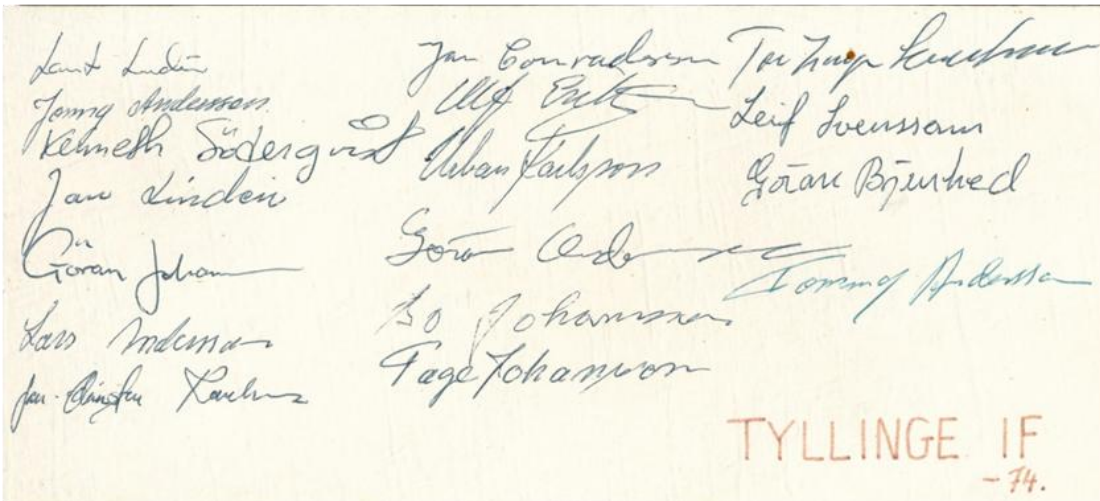 Lindén
Jonny Andersson
Kenneth Söderqvist
Jan Lindén
Göran Johansson
Lars Andersson
Jan-Christer Karlsson
Jan Conradsson
Ulf
Urban Karlsson
Göran Andersson
Bo Johansson
Tage Johansson
Leif Svensson
Göran Björkhed
Tommy Andersson
TYLLINGE IF
-74.